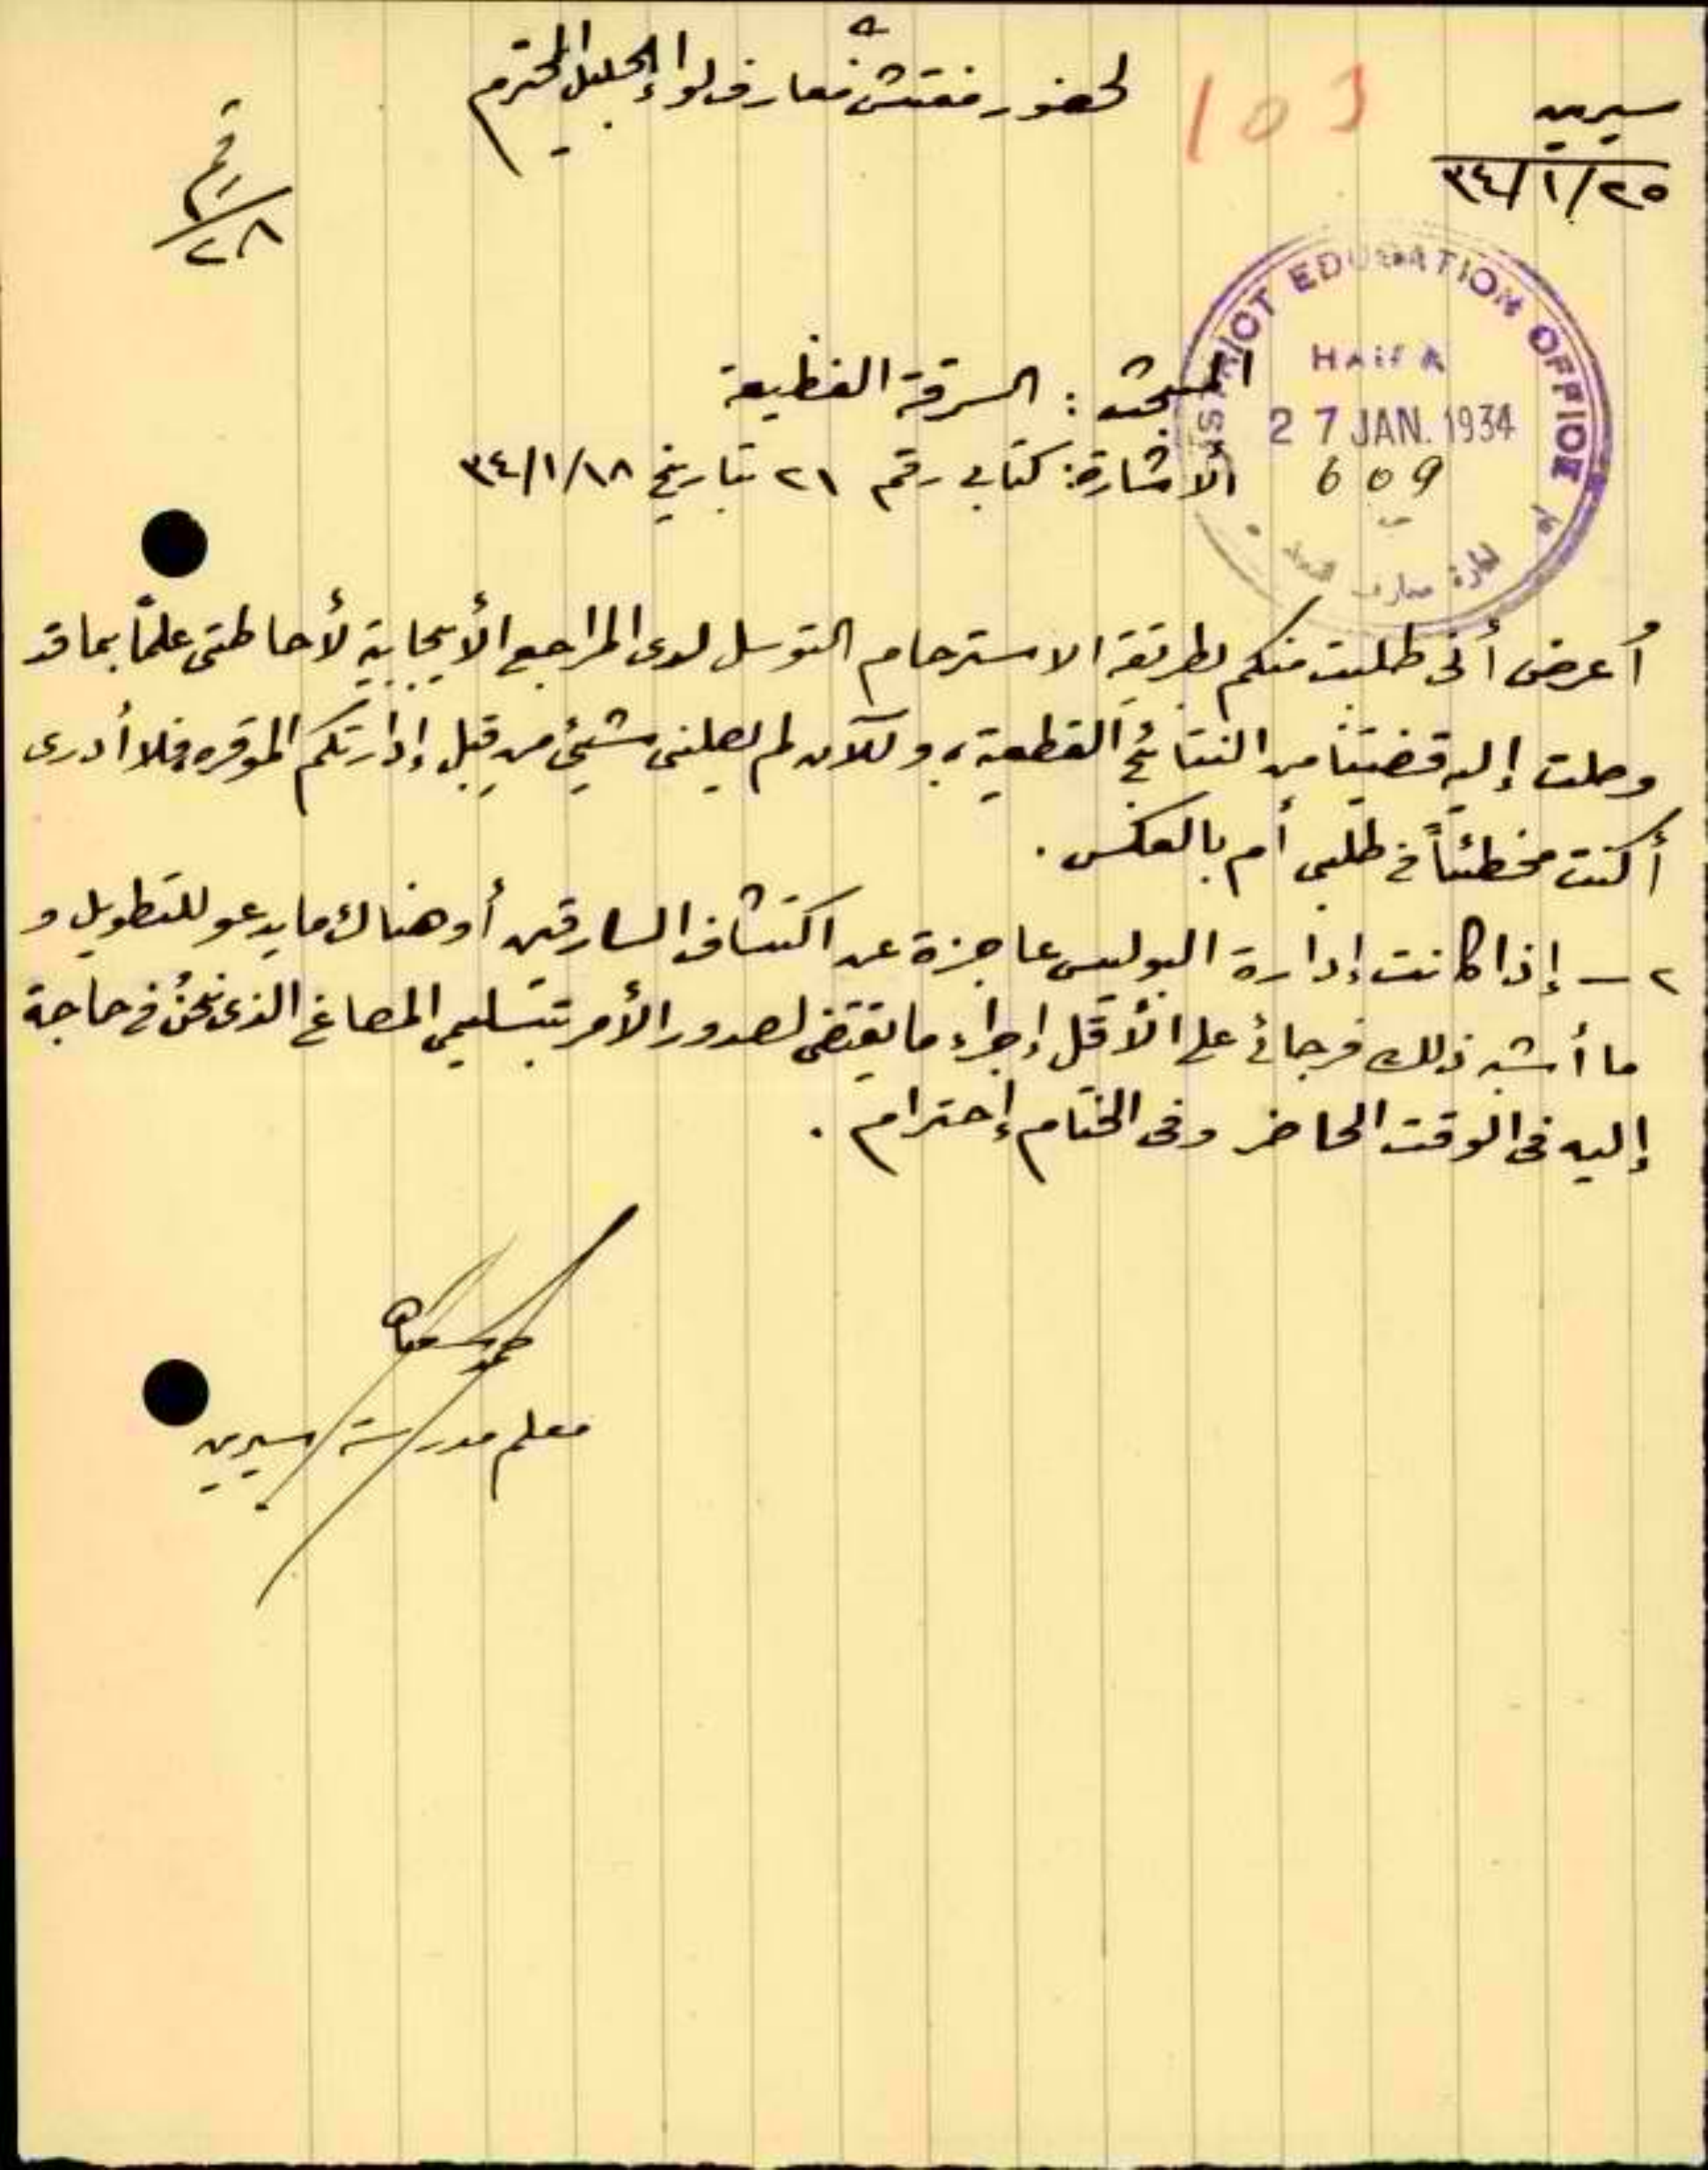 لحضور مفتش معارف لواء الجليل المحترم
سيرين
٢٥/١/٣٤
رقم
٢٨
DISTRICT EDUCATION OFFICE
HAIFA
27 JAN. 1934
609
المبحث : السرقة الفظيعة
الاشارة: كتابي رقم ٢١ تاريخ ١٨/١/٣٤
أُعرض أني طلبت منكم بطريقة الاسترحام التوسل لدى المراجع الأيجابية لأحاطتى علمًا بما قد
وصلت إليه قضيتنا من النتائج القطعية، وللآن لم يصلنى شيئ من قِبل إدارتكم الموقره فلا أدرى
أكنت مخطئاً في طلبي أم بالعكس .
٢ - إذا كانت إدارة البوليس عاجزة عن اكتشاف السارقين أو هناك ما يدعو للتطويل و
ما أشبه ذلك فرجائى على الأقل إجراء ما يقتضى لصدور الأمر بتسليمي المصاغ الذى نحنُ في حاجة
إليه في الوقت الحاضر وفى الختام إحترام .
معلم مدرسة سيرين